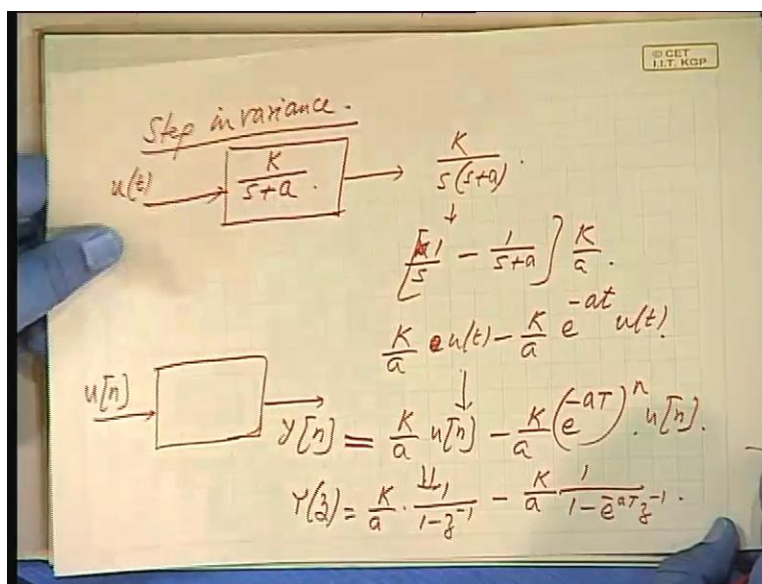 © CET
I.I.T. KGP
Step invariance.
u(t) K/(s+a). K/(s(s+a)).
[1/s - 1/(s+a)] K/a.
K/a u(t) - K/a e^{-at} u(t).
u[n] y[n] = K/a u[n] - K/a (e^{-aT})^n . u[n].
Y(z) = K/a . 1/(1-z^{-1}) - K/a 1/(1-e^{-aT}z^{-1}).